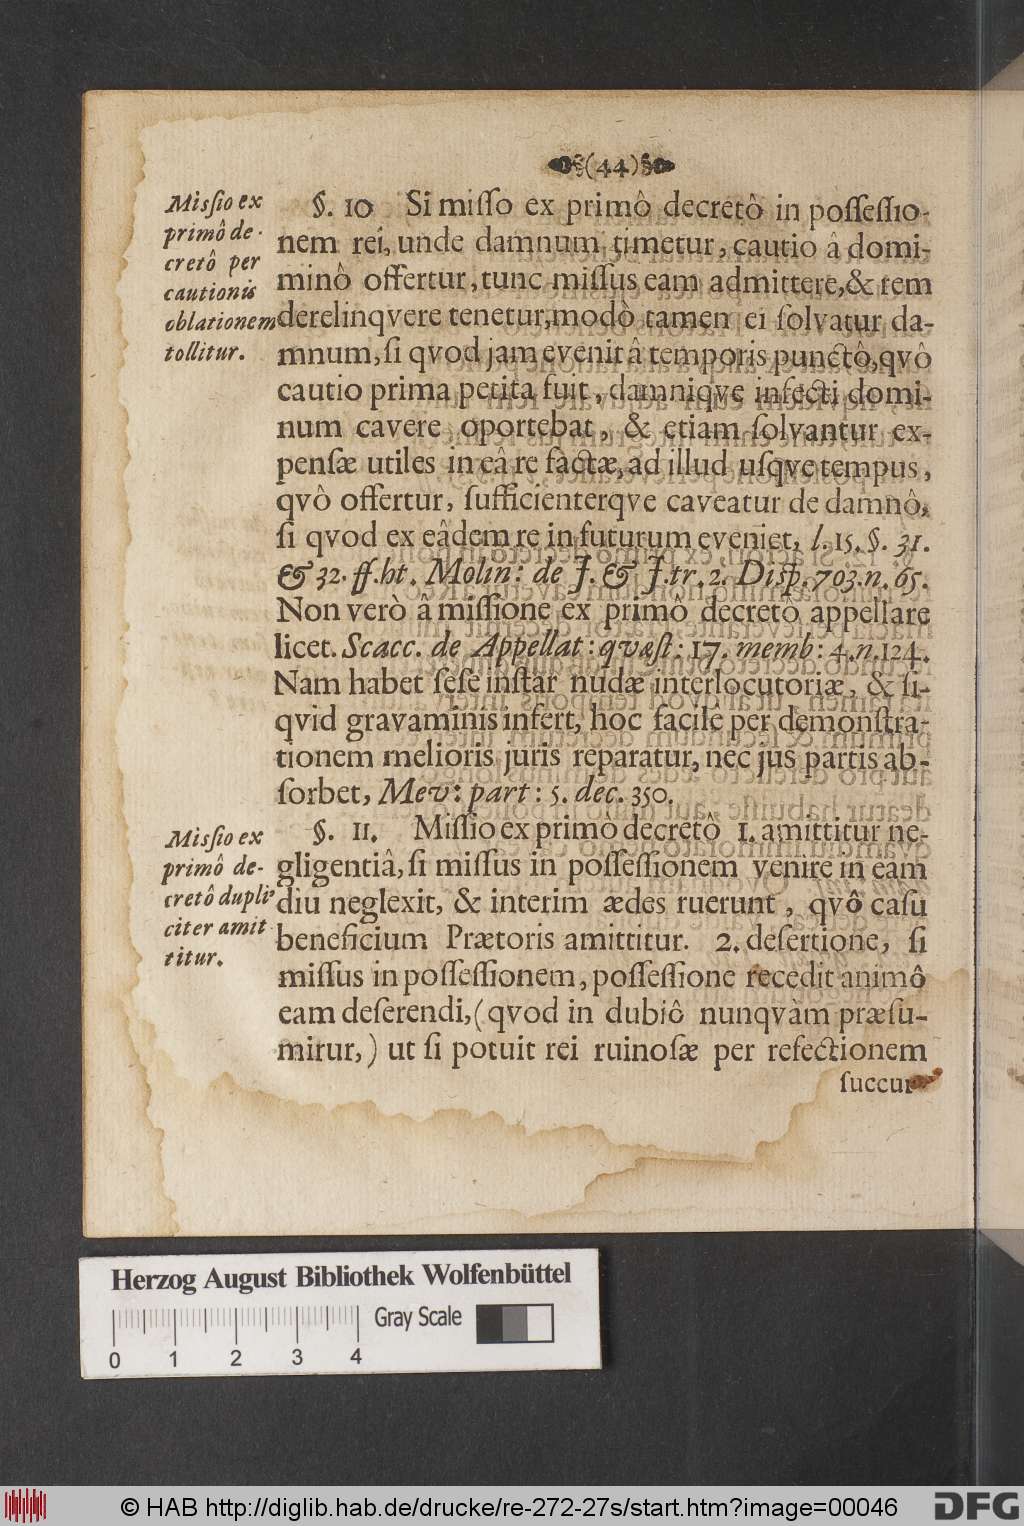 (44)
Miſſio ex
primô de-
cretô per
cautionis
oblationem
tollitur.
§. 10 Si miſſo ex primô decretô in poſſeſſio-
nem rei, unde damnum timetur, cautio â domi-
minô offertur, tunc miſſus eam admittere, & rem
derelinqvere tenetur, modò tamen ei ſolvatur da-
mnum, ſi qvod jam evenit â temporis punctô, qvô
cautio prima petita fuit, damniqve infecti domi-
num cavere oportebat, & etiam ſolvantur ex-
penſæ utiles in eâ re factæ, ad illud uſqve tempus,
qvô offertur, ſufficienterqve caveatur de damnô,
ſi qvod ex eâdem re in futurum eveniet, l. 15. §. 31.
& 32. ff. ht. Molin: de J. & J. tr. 2. Diſp. 703. n. 65.
Non verò â miſſione ex primô decretô appellare
licet. Scacc. de Appellat: qvæſt: 17. memb: 4. n. 124.
Nam habet ſeſe inſtar nudæ interlocutoriæ, & ſi-
qvid gravaminis infert, hoc facile per demonſtra-
tionem melioris juris reparatur, nec jus partis ab-
ſorbet, Mev: part: 5. dec. 350.
Miſſio ex
primô de-
cretô dupli-
citer amit
titur.
§. 11. Miſſio ex primò decretô 1. amittitur ne-
gligentiâ, ſi miſſus in poſſeſſionem venire in eam
diu neglexit, & interim ædes ruerunt, qvô caſu
beneficium Prætoris amittitur. 2. deſertione, ſi
miſſus in poſſeſſionem, poſſeſſione recedit animô
eam deſerendi, (qvod in dubiô nunqvàm præſu-
mirur,) ut ſi potuit rei ruinoſæ per refectionem
ſuccur
Herzog August Bibliothek Wolfenbüttel
Gray Scale
0 1 2 3 4
© HAB http://diglib.hab.de/drucke/re-272-27s/start.htm?image=00046
DFG